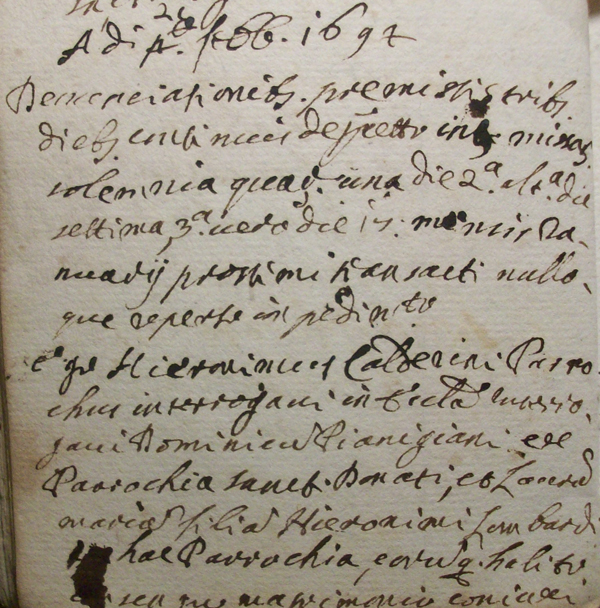 A di p.º febb. 1694
Denunciationibs. premissis tribs
diebs continuis de pretto int. missar.
solemnia quar. una die 2.ª alt.ª die
settima 3.ª uero die 17. mensis Ja-
nuarij prossimi transacti nullo-
que reperto inpedim.to
Ego Hieronimus Catterini Parro-
chus interrogaui in Eccla
gaui Dominicu Pianigiani ex
Parrochia sanct. Donati, et Laura
maria filia Hieronimi Lombardi
hac Parrochia, eoruq. habito
con sensu matrimonio coniuxi